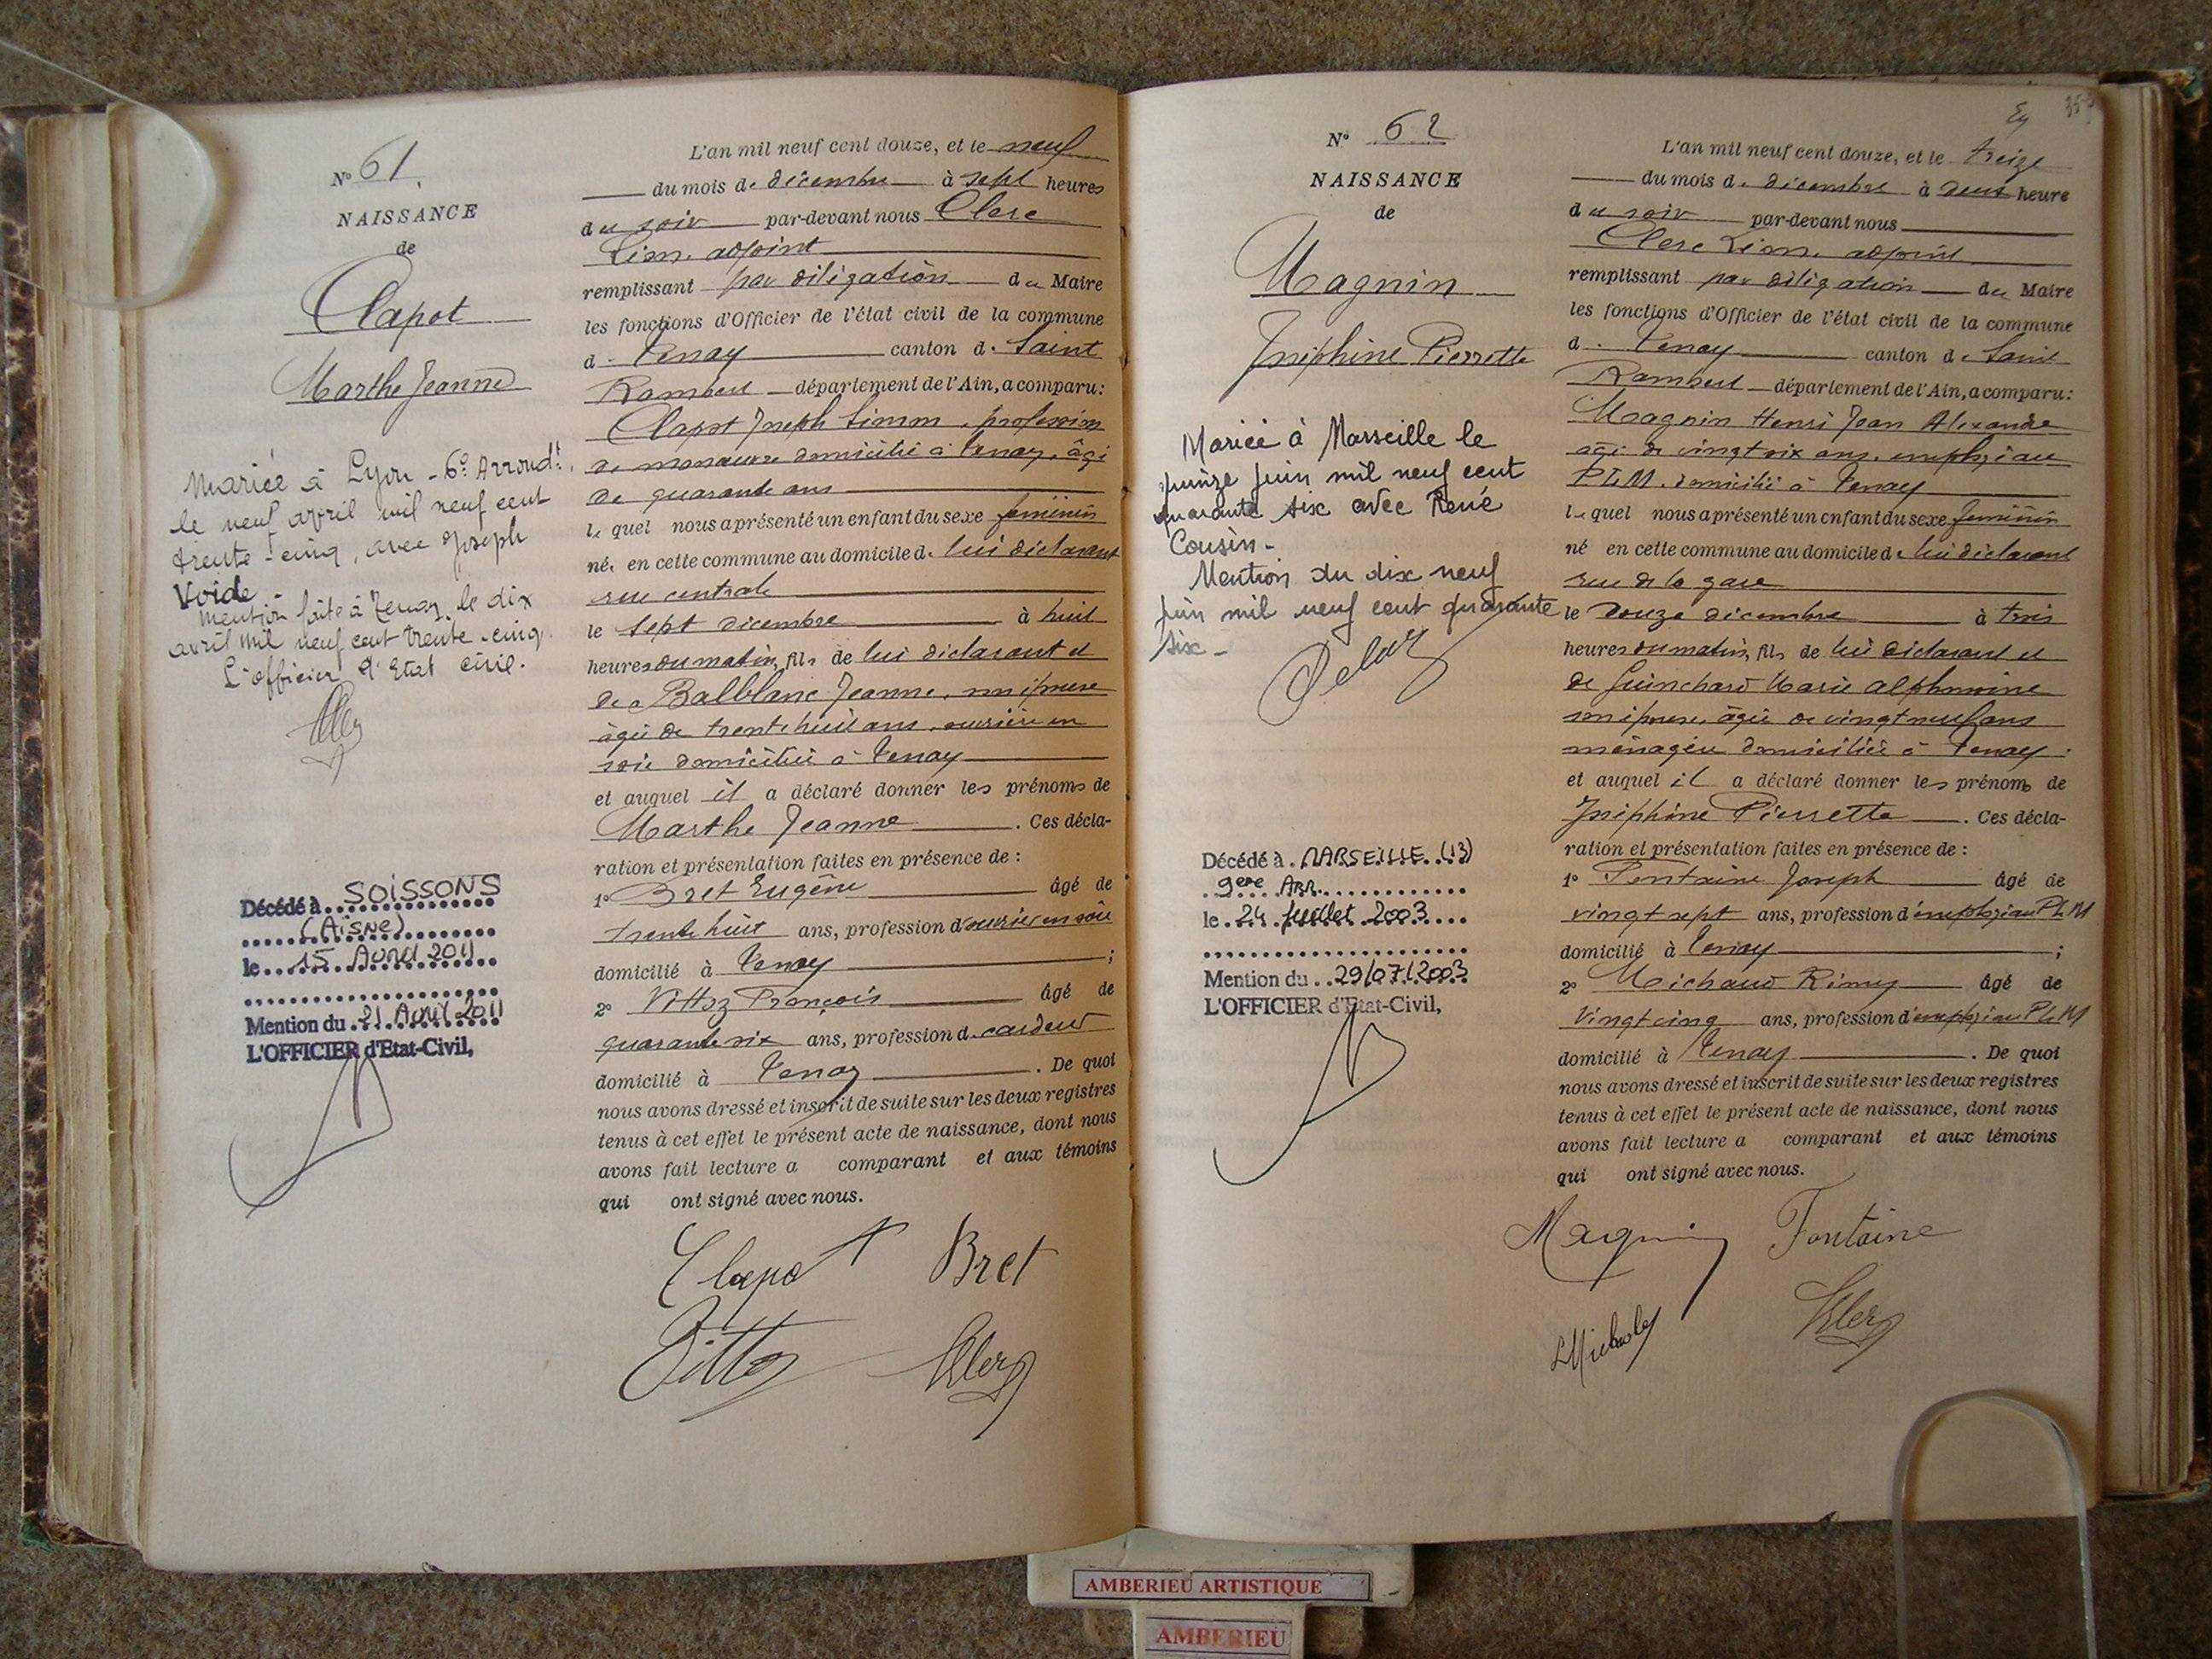 N° 61.
NAISSANCE
de
Clapot
Marthe Jeanne
Mariée à Lyon - 6e Arrondt.
le neuf avril mil neuf cent
trente-cinq, avec Joseph
Voide.
Mention faite à Tenay, le dix
avril mil neuf cent trente-cinq.
L'officier d'Etat civil.
Décédé à SOISSONS
(Aisne)
le 15 Avril 2011
Mention du 21 Avril 2011
L'OFFICIER d'Etat-Civil,
L'an mil neuf cent douze, et le neuf
du mois de décembre à sept heures
du soir par-devant nous Clerc
Léon, adjoint
remplissant par délégation du Maire
les fonctions d'Officier de l'état civil de la commune
de Tenay canton de Saint
Rambert département de l'Ain, a comparu :
Clapot Joseph Simon, profession
de manœuvre domicilié à Tenay, âgé
de quarante ans
lequel nous a présenté un enfant du sexe féminin
née en cette commune au domicile de lui déclarant
rue centrale
le sept décembre à huit
heures du matin, fille de lui déclarant et
de Balblanc Jeanne, son épouse
âgée de trente huit ans, ouvrière en
soie domiciliée à Tenay
et auquel il a déclaré donner les prénoms de
Marthe Jeanne. Ces décla-
ration et présentation faites en présence de :
1° Bret Eugène âgé de
trente huit ans, profession d'ouvrier en soie
domicilié à Tenay ;
2° Vittoz François âgé de
quarante six ans, profession de cardeur
domicilié à Tenay. De quoi
nous avons dressé et inscrit de suite sur les deux registres
tenus à cet effet le présent acte de naissance, dont nous
avons fait lecture a comparant et aux témoins
qui ont signé avec nous.
Clapot Bret
Vittoz Clerc
N° 62
NAISSANCE
de
Magnin
Joséphine Pierrette
Mariée à Marseille le
quinze juin mil neuf cent
quarante six avec René
Cousin -
Mention du dix neuf
juin mil neuf cent quarante
six -
Décédé à MARSEILLE (13)
9eme ARR.
le 24 Juillet 2003
Mention du 29/07/2003
L'OFFICIER d'Etat-Civil,
L'an mil neuf cent douze, et le treize
du mois de décembre à deux heure
du soir par-devant nous
Clerc Léon, adjoint
remplissant par délégation du Maire
les fonctions d'Officier de l'état civil de la commune
de Tenay canton de Saint
Rambert département de l'Ain, a comparu :
Magnin Henri Jean Alexandre
âgé de vingt six ans, employé au
PLM, domicilié à Tenay
lequel nous a présenté un enfant du sexe féminin
né en cette commune au domicile de lui déclarant
rue de la gare
le douze décembre à trois
heures du matin, fille de lui déclarant et
de Guinchard Marie Alphonsine
son épouse, âgée de vingt neuf ans
ménagère domiciliée à Tenay
et auquel il a déclaré donner les prénoms de
Joséphine Pierrette. Ces décla-
ration et présentation faites en présence de :
1° Fontaine Joseph âgé de
vingt sept ans, profession d'employé au PLM
domicilié à Tenay ;
2° Michaud Rémy âgé de
Vingt cinq ans, profession d'employé au PLM
domicilié à Tenay. De quoi
nous avons dressé et inscrit de suite sur les deux registres
tenus à cet effet le présent acte de naissance, dont nous
avons fait lecture a comparant et aux témoins
qui ont signé avec nous.
Magnin Fontaine
Clerc
AMBERIEU ARTISTIQUE
AMBERIEU